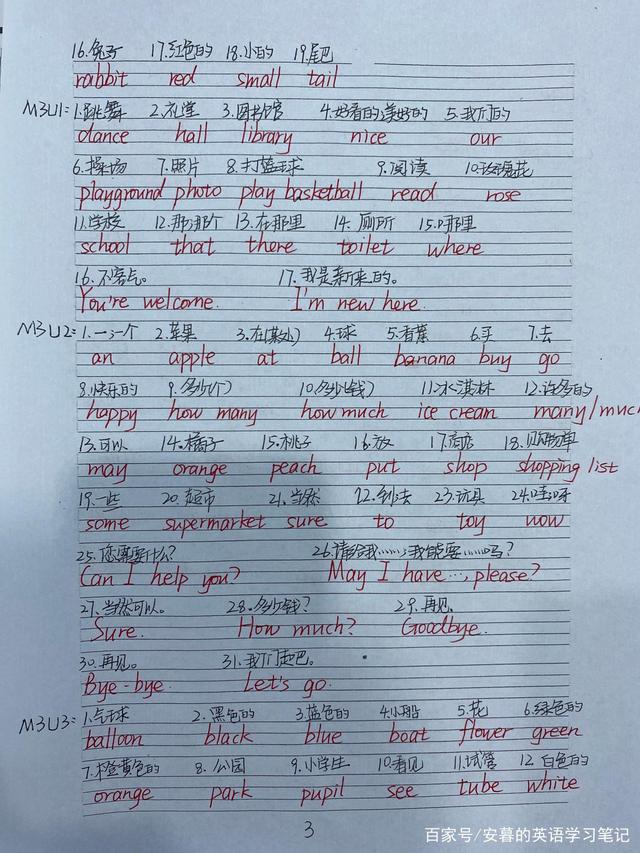 16.兔子 17.红色的 18.小的 19.尾巴
rabbit red small tail
M3U1: 1.跳舞 2.礼堂 3.图书馆 4.好看的;美好的 5.我们的
dance hall library nice our
6.操场 7.照片 8.打篮球 9.阅读 10.玫瑰花
playground photo play basketball read rose
11.学校 12.那;那个 13.在那里 14.厕所 15.哪里
school that there toilet where
16.不客气。 17.我是新来的。
You're welcome. I'm new here.
M3U2: 1.一;一个 2.苹果 3.在(某处) 4.球 5.香蕉 6.买 7.去
an apple at ball banana buy go
8.快乐的 9.多少(个) 10.多少(钱) 11.冰淇淋 12.许多的
happy how many how much ice cream many/much
13.可以 14.橘子 15.桃子 16.放 17.商店 18.购物单
may orange peach put shop shopping list
19.一些 20.超市 21.当然 22.到;去 23.玩具 24.哇;呀
some supermarket sure to toy wow
25.您需要什么? 26.请给我……;我能要……吗?
Can I help you? May I have …, please?
27.当然可以。 28.多少钱? 29.再见。
Sure. How much? Goodbye.
30.再见。 31.我们一起吧。
Bye-bye. Let's go.
M3U3: 1.气球 2.黑色的 3.蓝色的 4.小船 5.花 6.绿色的
balloon black blue boat flower green
7.橙黄色的 8.公园 9.小学生 10.看见 11.试管 12.白色的
orange park pupil see tube white
3
百家号/安暮的英语学习笔记